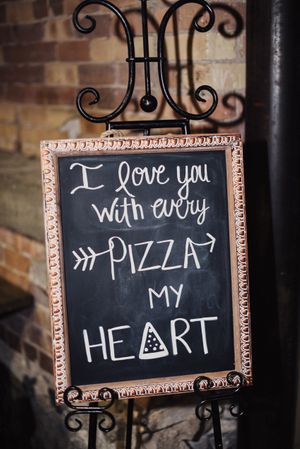 I love you
with every
PIZZA
MY
HEART